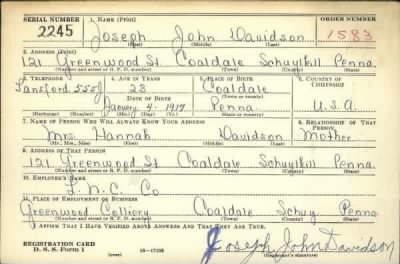 SERIAL NUMBER 1. NAME (Print) ORDER NUMBER
2245 Joseph John Davidson 1583
(First) (Middle) (Last)
2. ADDRESS (Print)
121 Greenwood St. Coaldale Schuylkill Penna.
(Number and street or R. F. D. number) (Town) (County) (State)
3. TELEPHONE 4. AGE IN YEARS 5. PLACE OF BIRTH 6. COUNTRY OF CITIZENSHIP
Lansford 555J 23 Coaldale
DATE OF BIRTH (Town or county)
January 4 - 1917 Penna U.S.A.
(Exchange) (Number) (Mo.) (Day) (Yr.) (State or country)
7. NAME OF PERSON WHO WILL ALWAYS KNOW YOUR ADDRESS 8. RELATIONSHIP OF THAT PERSON
Mrs. Hannah Davidson Mother
(Mr., Mrs., Miss) (First) (Middle) (Last)
9. ADDRESS OF THAT PERSON
121 Greenwood St Coaldale Schuylkill Penna.
(Number and street or R. F. D. number) (Town) (County) (State)
10. EMPLOYER'S NAME
L. N. C. Co
11. PLACE OF EMPLOYMENT OR BUSINESS
Greenwood Colliery Coaldale Schuy. Penna
(Number and street or R. F. D. number) (Town) (County) (State)
I AFFIRM THAT I HAVE VERIFIED ABOVE ANSWERS AND THAT THEY ARE TRUE.
REGISTRATION CARD
D. S. S. Form 1 (over) Joseph John Davidson
(Registrant's signature)